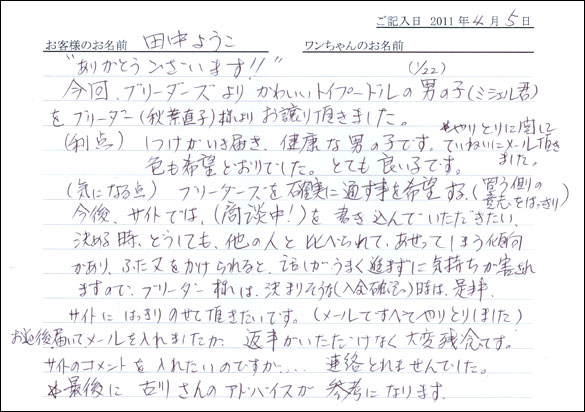 ご記入日 2011年4月5日
お客様のお名前 田中ようこ ワンちゃんのお名前
"ありがとうございます!!" (1/22)
今回、ブリーダーズより かわいいトイプードルの男の子(ミシェル君)
をブリーダー(秋葉直子)様よりお譲り頂きました。
※やりとりに関して
(利点) しつけがいき届き、健康な男の子です。ていねいにメール頂き
ました。
色も希望どおりでした。とても良い子です。
(気になる点) ブリーダーズを確実に通す事を希望する。(買う側の
意志をはっきり)
今後、サイトでは、(商談中!)を書き込んでいただきたい。
決める時、どうしても、他の人と比べられて、あせってしまう傾向
があり、ふた又をかけられると、話しがうまく進まずに気持ちが害され
ますので、ブリーダー様には、決まりそうな(入金確認の)時は、是非
サイトにはっきりのせて頂きたいです。(メールですべてやりとりしました)
お迎後届いてメールを入れましたが、返事がいただけなく大変残念です。
サイトのコメントを入れたいのですが.... 連絡とれませんでした。
※最後に 古川さんのアドバイスが 参考になります。